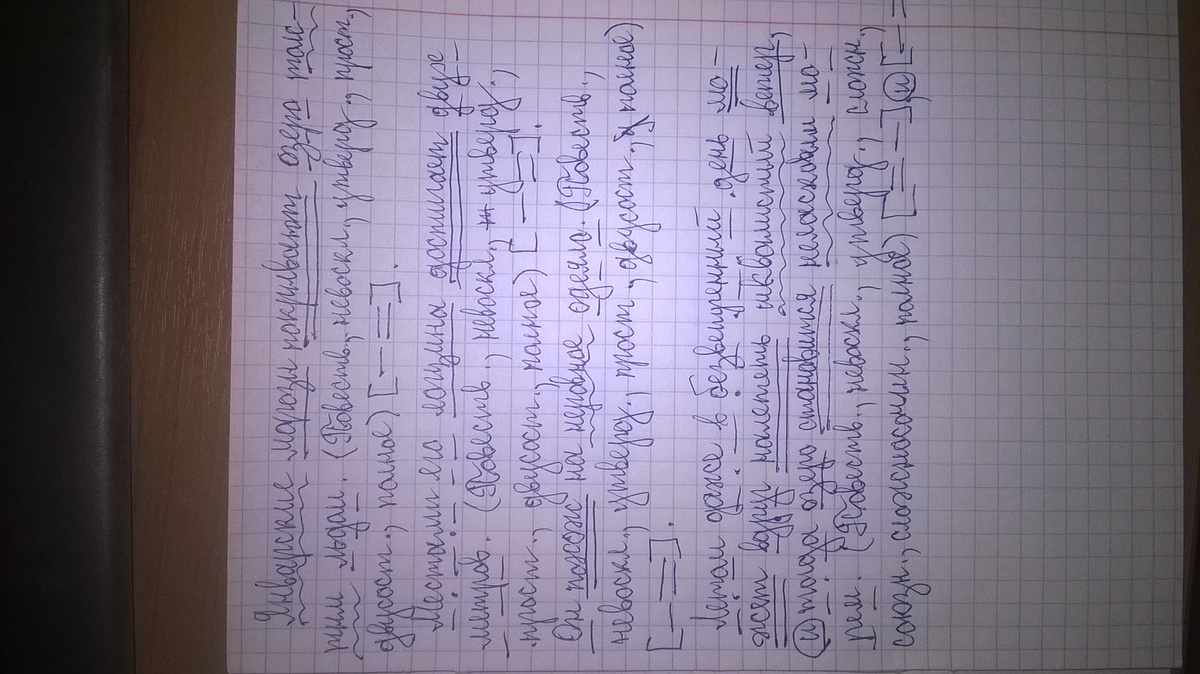 Январские морозы покрывают озеро толс-
тым льдом. (Повеств., невоскл., утверд., прост.,
двусост., полное) [— =].
Местами его толщина достигает двух
метров. (Повеств., невоскл., утверд.,
прост., двусост., полное) [— =].
Он похож на неровное одеяло. (Повеств.,
невоскл., утверд., прост., двусост., полное)
[— =].
Летом даже в безветренный день мо-
жет вдруг налететь шквалистый ветер,
и тогда озеро становится неласковым мо-
рем. (Повеств., невоскл., утверд., сложн.,
союзн., сложносочин., полное) [= —], и [— =